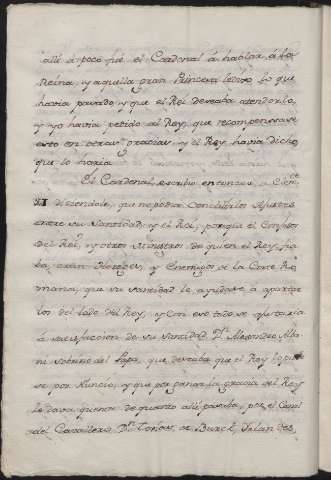 allí á poco fué el Cardenal á hablar á la
Reina, y aquella gran Princesa lo que
havia pasado, y que el Rei deseaba atenderlo,
y yo havia pedido al Rey, que recompensase
esto en otras gracias, y el Rey havia dicho
que lo haria
El Cardenal escribio entonces a Clemte
XI diciendole, que no podia concluirlos Ajustes
entre su Santidad, y el Rei, porque el Confesor
del Rei, y otros Ministros de quien el Rey, fia
ba, eran Hereges, y Enemigos de la Corte Ro
mana, que su Santidad le ayudase à apartar
los del lado del Rey, y con eso todo se ajustaria
á satisfaccion de su Santidad. Dn Alexandro Alba
ni sobrino del Papa, que deseaba que el Rey lo pidie
se por Nuncio, y que por ganar la gracia del Rey
le dava quenta de quanto allí pasaba, por el Canal
del Cavallero Dn Tomas de Burck, Irlandes